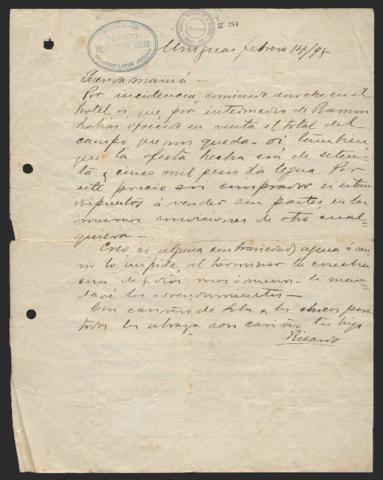 Uruguai, febrero 14/95
Querida mamá –
Por incidencia, comiendo anoche en el
hotel, oi que por intermedio de Ramon
habias ofrecido en venta el total del
campo que nos queda – oi tambien
que la oferta hecha era de seten-
ta y cinco mil pesos la legua. Por
este precio soy comprador si están
dispuestos á vender sus partes en las
mismas condiciones de otro cual-
quiera –
Creo, si alguna contrariedad agena á mi
no lo impide, al terminar la cosecha
mas ó menos te man-
daré los arrendamientos –
Con cariños de Lola a los chicos para
todos los abraza con cariño tu hijo
Ricardo